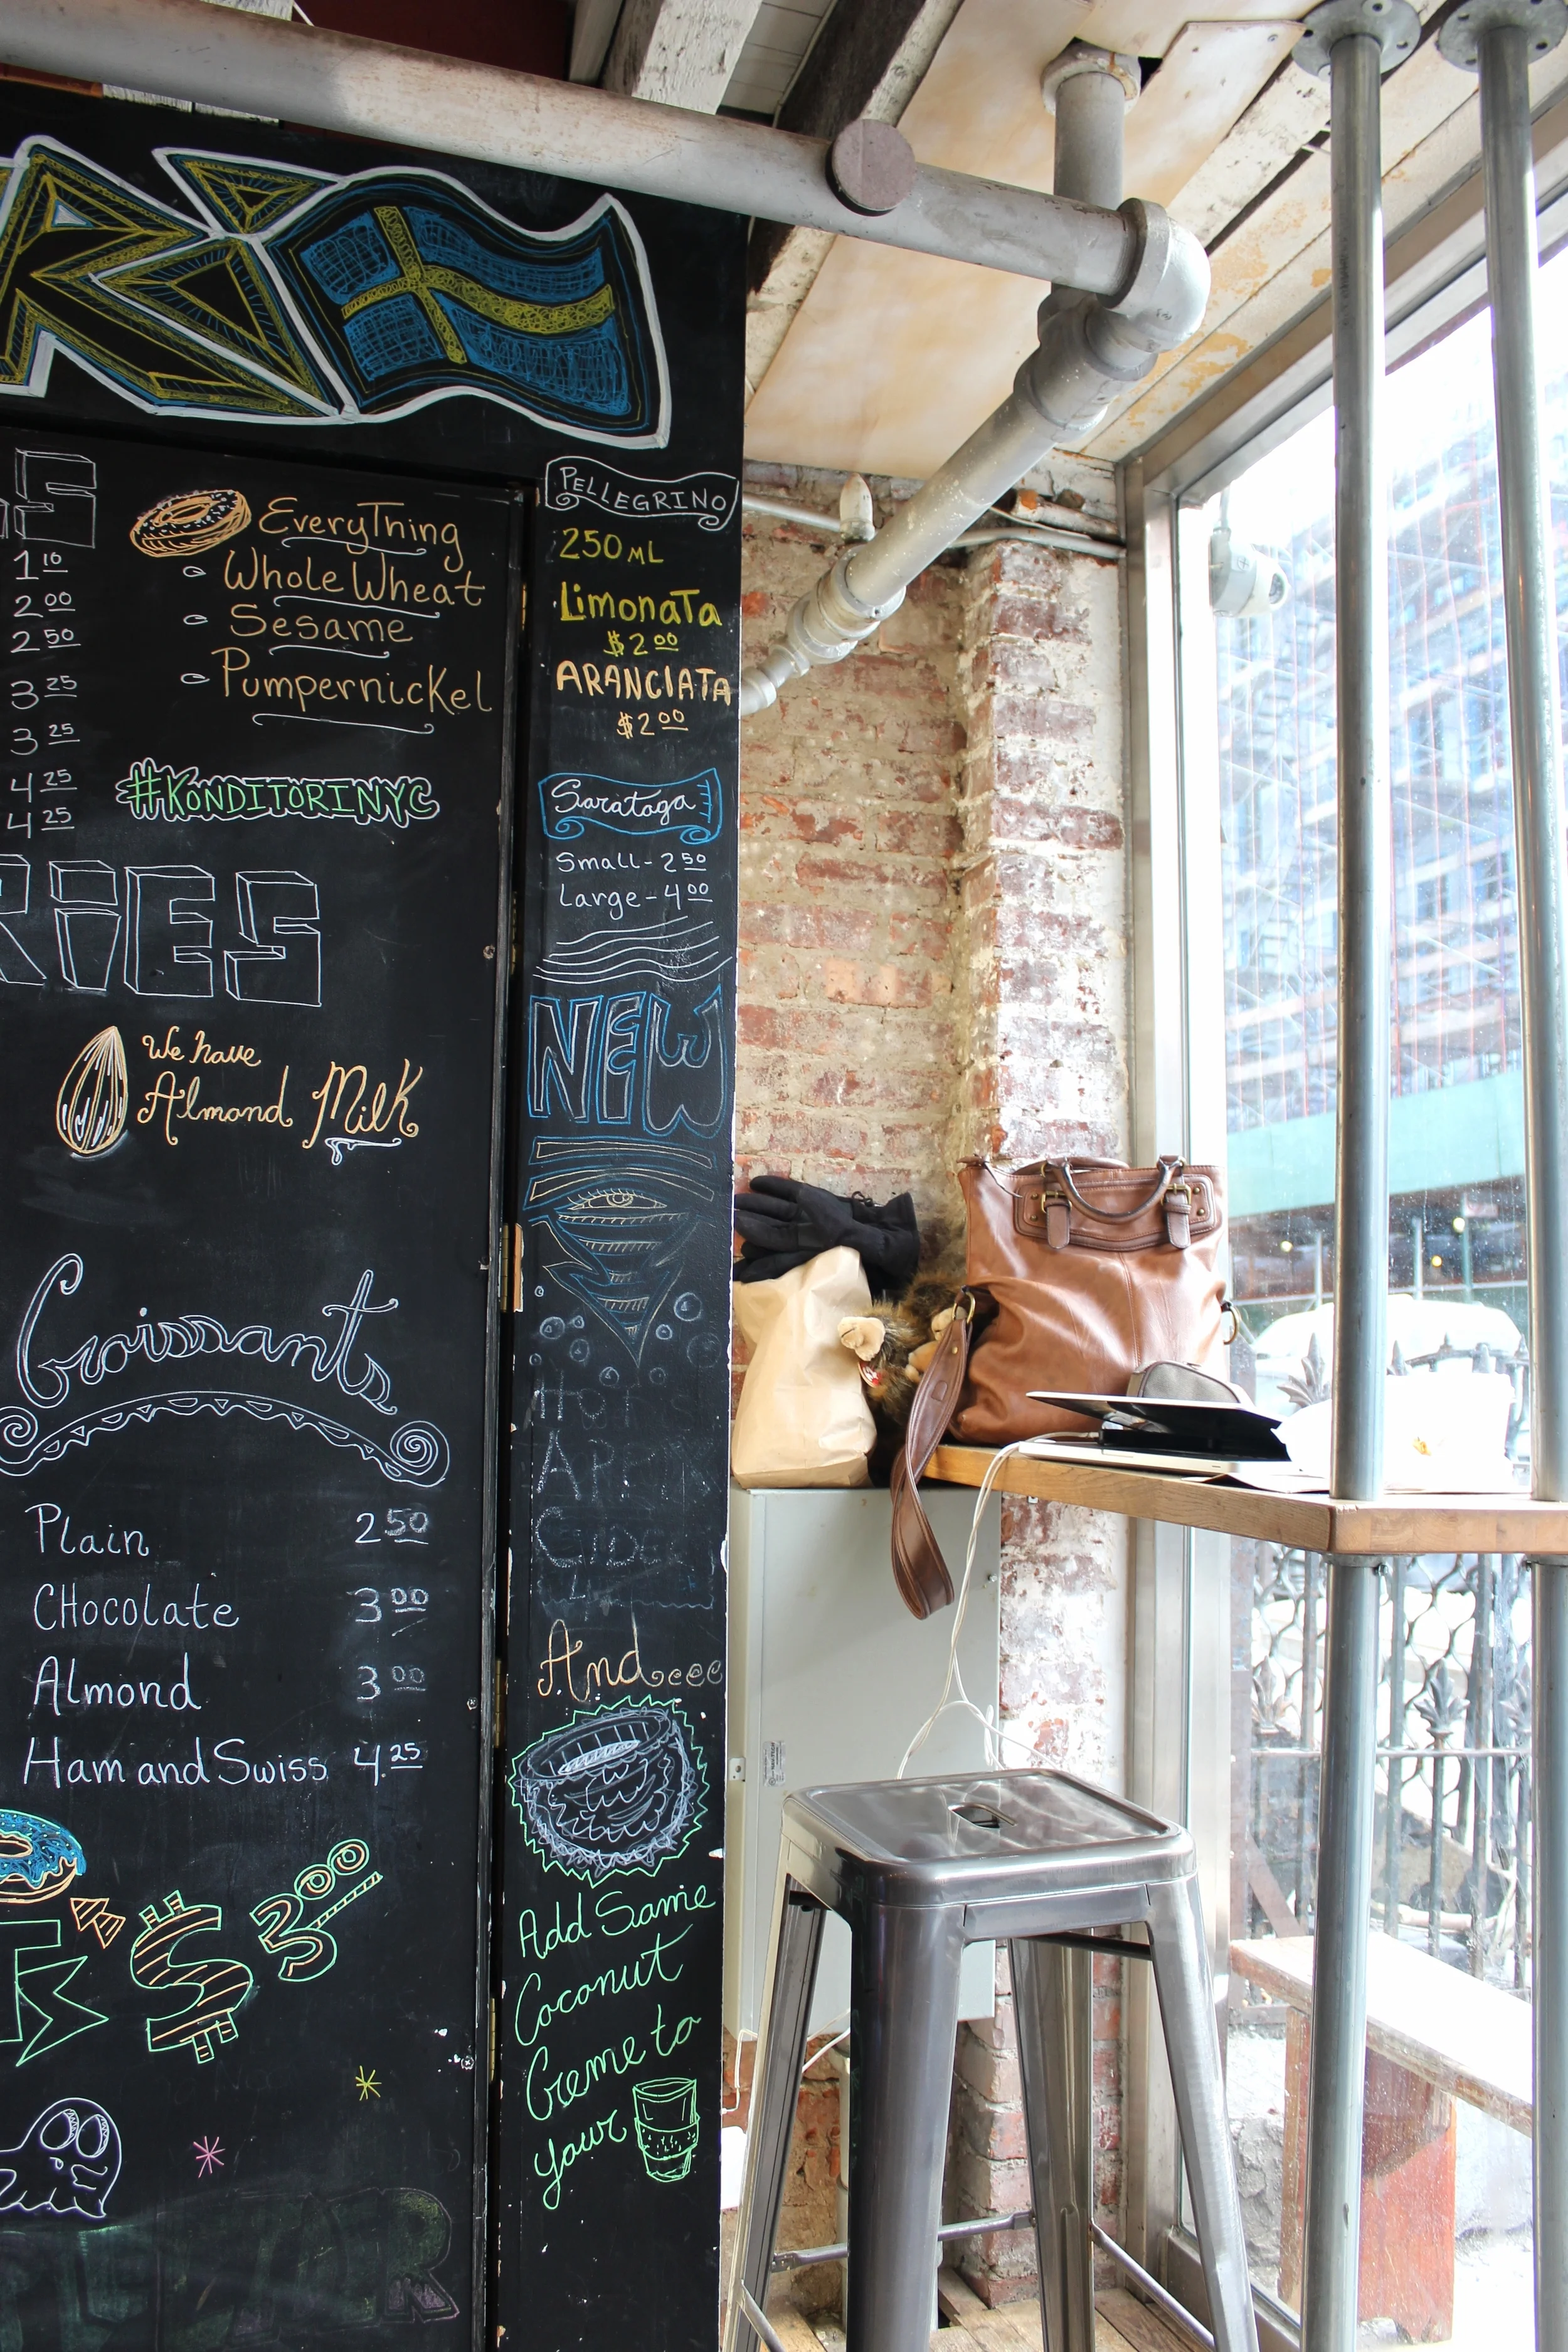 RI
S
1 10
2 00
2 50
3 25
3 25
4 25
4 25
EveryThing
Whole Wheat
Sesame
Pumpernickel
#KONDITORINYC
RiES
We have
Almond Milk
Croissants
Plain 2 50
CHocolate 3 00
Almond 3 00
Ham and Swiss 4.25
$3 00
PELLEGRINO
250 ML
LimonaTa
$2 00
ARANCIATA
$2 00
Saratoga
Small - 2 50
Large - 4 00
NEW
CIDER
And
Add Some
Coconut
Creme to
your